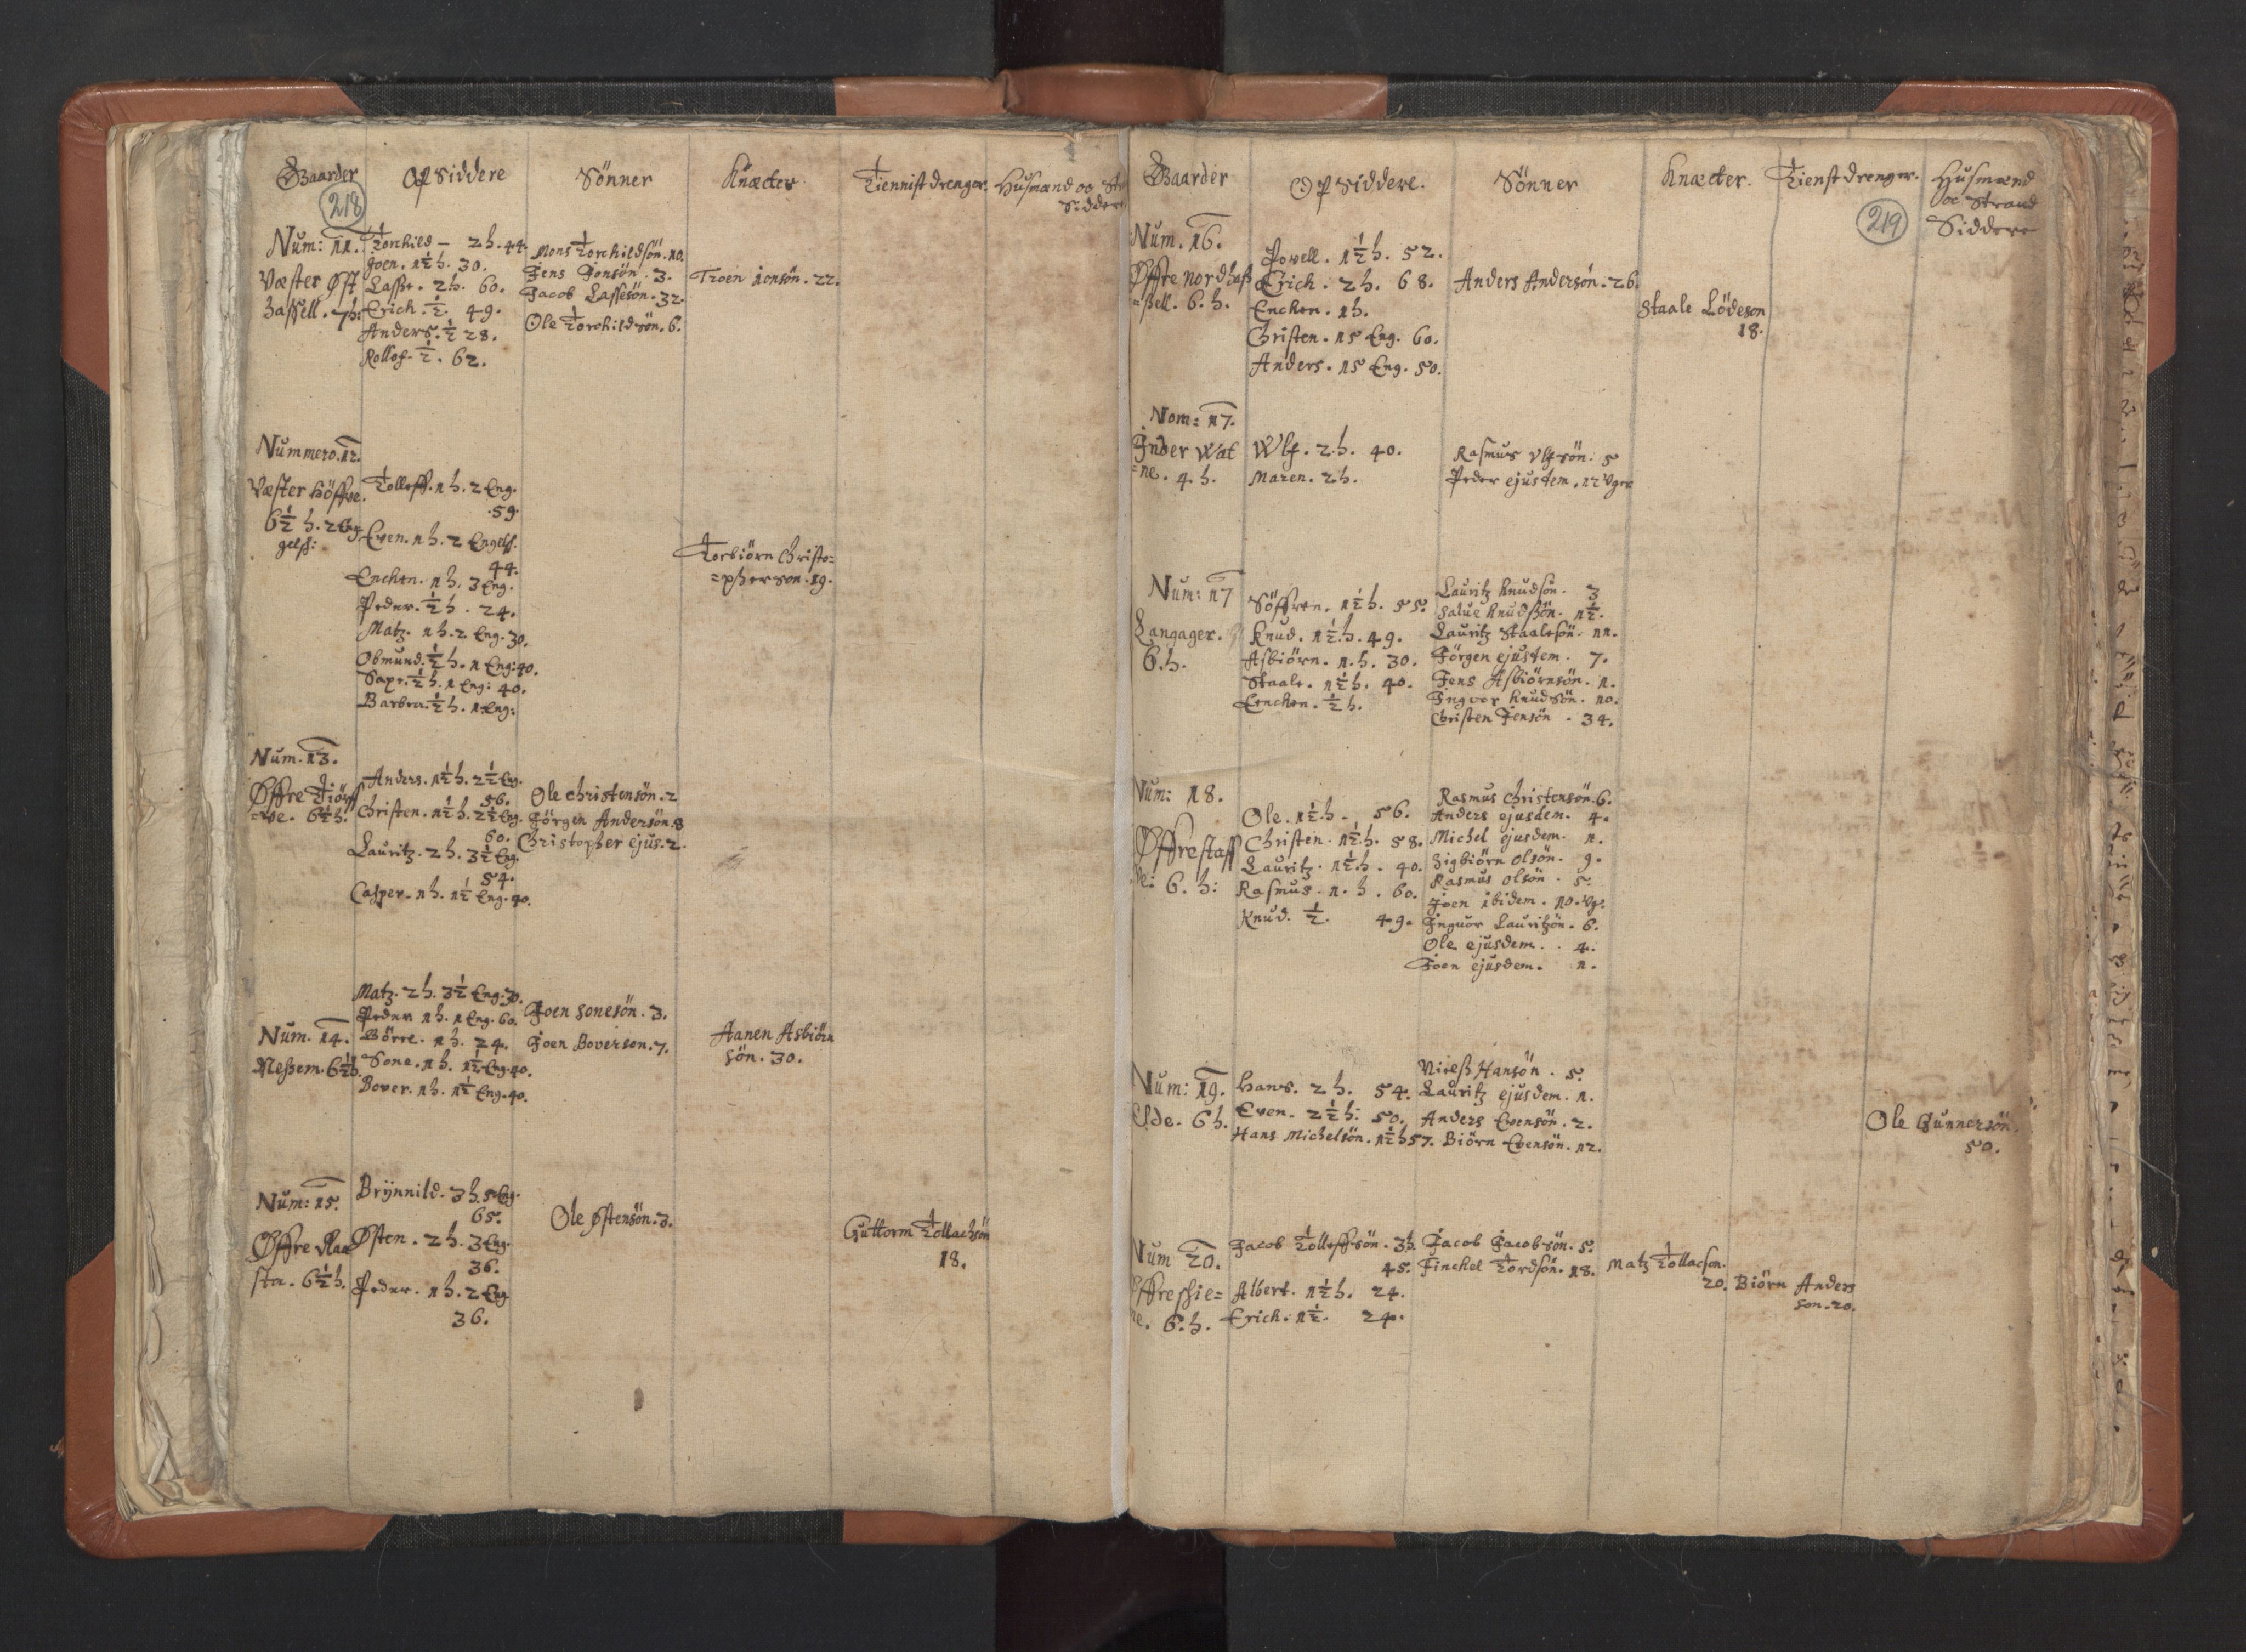 Gaarder
Opsiddere
Sönner
Knæcter
Tiennist drenger.
Husmænd oc Str
Sidder
218
Num: 11.
Væster Øst
hassell. 7h:
Torchild – 2 h. 44.
Joen. 1½ h. 30.
Lasse. 2 h. 60.
Erich. ½. 49.
Anders. ½ 28.
Rollof. ½. 62.
Mons Torchildsön. 10.
Jens Jonsön. 3.
Jacob Lassesön. 32.
Ole Torchildsön. 6.
Troen Jonsön. 22.
Nummero. 12.
Væster Höffve.
6½ h. 2 Eng
gelsk:
Tolleff. 1 h. 2 Eng.
59.
Even. 1 h. 2 Engels.
44.
Enchen. 1 h. 3 Eng.
Peder. ½ h. 24.
Matz. 1 h. 2 Eng. 30.
Obmund. ½ h. 1 Eng: 40.
Saxe. ½ h. 1 Eng: 40.
Barbra. ½ h. 1 Eng:
Torbiörn Christo=
=pherson. 19.
Num. 13.
Øffre Tiörff
=ve. 6½ h.
Anders. 1½ h. 2½ Eng.
56.
Christen. 1½ h. 2½ Eng.
60.
Lauritz. 2 h. 3½ Eng.
54.
Casper. 1 h. 1½ Eng. 40.
Ole Christensön. 2
Jörgen Andersön. 8
Christopher ejus. 2.
Num. 14.
Nessem. 6½ h.
Matz. 2 h. 3½ Eng: 30.
Peder 1 h. 1 Eng. 60.
Börre. 1 h. 24.
Sone. 1 h. 1½ Eng. 40.
Bover. 1 h. 1½ Eng. 40.
Joen Sonesön. 3.
Joen Boverson. 7.
Aanen Asbiörn
sön. 30.
Num: 15.
Øffre Raae
sta. 6½ h.
Brÿnnild. 3 h. 5 Eng.
65.
Østen. 2 h. 3 Eng.
36.
Peder. 1 h. 2 Eng
36.
Ole Østensön. 3.
Guttorm Tollachsön
18.
Gaarder
Opsiddere.
Sönner
Knæcter.
Tienst drenger.
Husmænd
oc Strand
Siddere
219
Num. 16.
Øffre Nordhas
=sell. 6. h.
Povell. 1½ h. 52.
Erich. 2 h. 68.
Enchen. 1 h.
Christen. 15 Eng. 60.
Anders. 15 Eng. 50.
Anders Andersön. 26.
Staale Lödeson
18.
Nom: 17.
Inder Wat
=ne. 4. h.
Wlf. 2 h. 40.
Maren. 2 h.
Rasmus Ulfsön. 5
Peder ejusdem. 12 Uger
Num: 17
Langager.
6. h.
Söffren. 1½ h. 55.
Knud. 1½ h. 49.
Asbiörn. 1. h. 30.
Staale. 1½ h. 40.
Enchen. ½ h.
Lauritz Knudsön. 3
Salue Knudsön. 1½.
Lauritz Staalesön. 11.
Jörgen ejusdem. 7.
Jens Asbiörnsön. 1.
Ingvor Knudsön. 10.
Christen Jensön. 34.
Num: 18.
Øffre staff
ve: 6. h:
Ole. 1½ h – 56.
Christen. 1½ h. 58.
Lauritz. 1½ h. 40.
Rasmus. 1. h. 60.
Knud. ½. 49.
Rasmus Christensön. 6.
Anders ejusdem. 4.
Michel ejusdem. 1.
Sigbiörn Olsön. 9.
Rasmus Olsön. 5.
Joen ibidem. 10. Ug.
Ingvor Lauritzön. 6.
Ole ejusdem. 4.
Joen ejusdem. 1.
Num: 19.
Elde. 6 h.
Hans. 2 h. 54.
Even. 2½ h: 50.
Hans Michelsön. 1½ h 57.
Nielss Hansön. 5.
Lauritz ejusdem. 1.
Anders Evensön. 2.
Biörn Evensön. 12.
Ole Gunnersön.
50.
Num 20.
Øffre skie=
ne. 6. h.
Jacob Tolleffsön. 3 h
45.
Albert. 1½ h. 24.
Erich. 1½. 24.
Jacob Jacobsön. 5.
Finchel Tordsön. 18.
Matz Tollacson.
20.
Biörn Anders
son. 20.